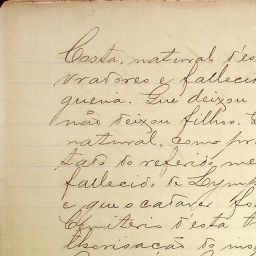 Costa, natural d'es
vradores e falleci
queria. Que deixou
não deixou filhos. E
natural, como pro
tado do referido, me
fallecido de Lymp
e que o cadaver fo
Cemiterio d'esta V
thorisação do mes